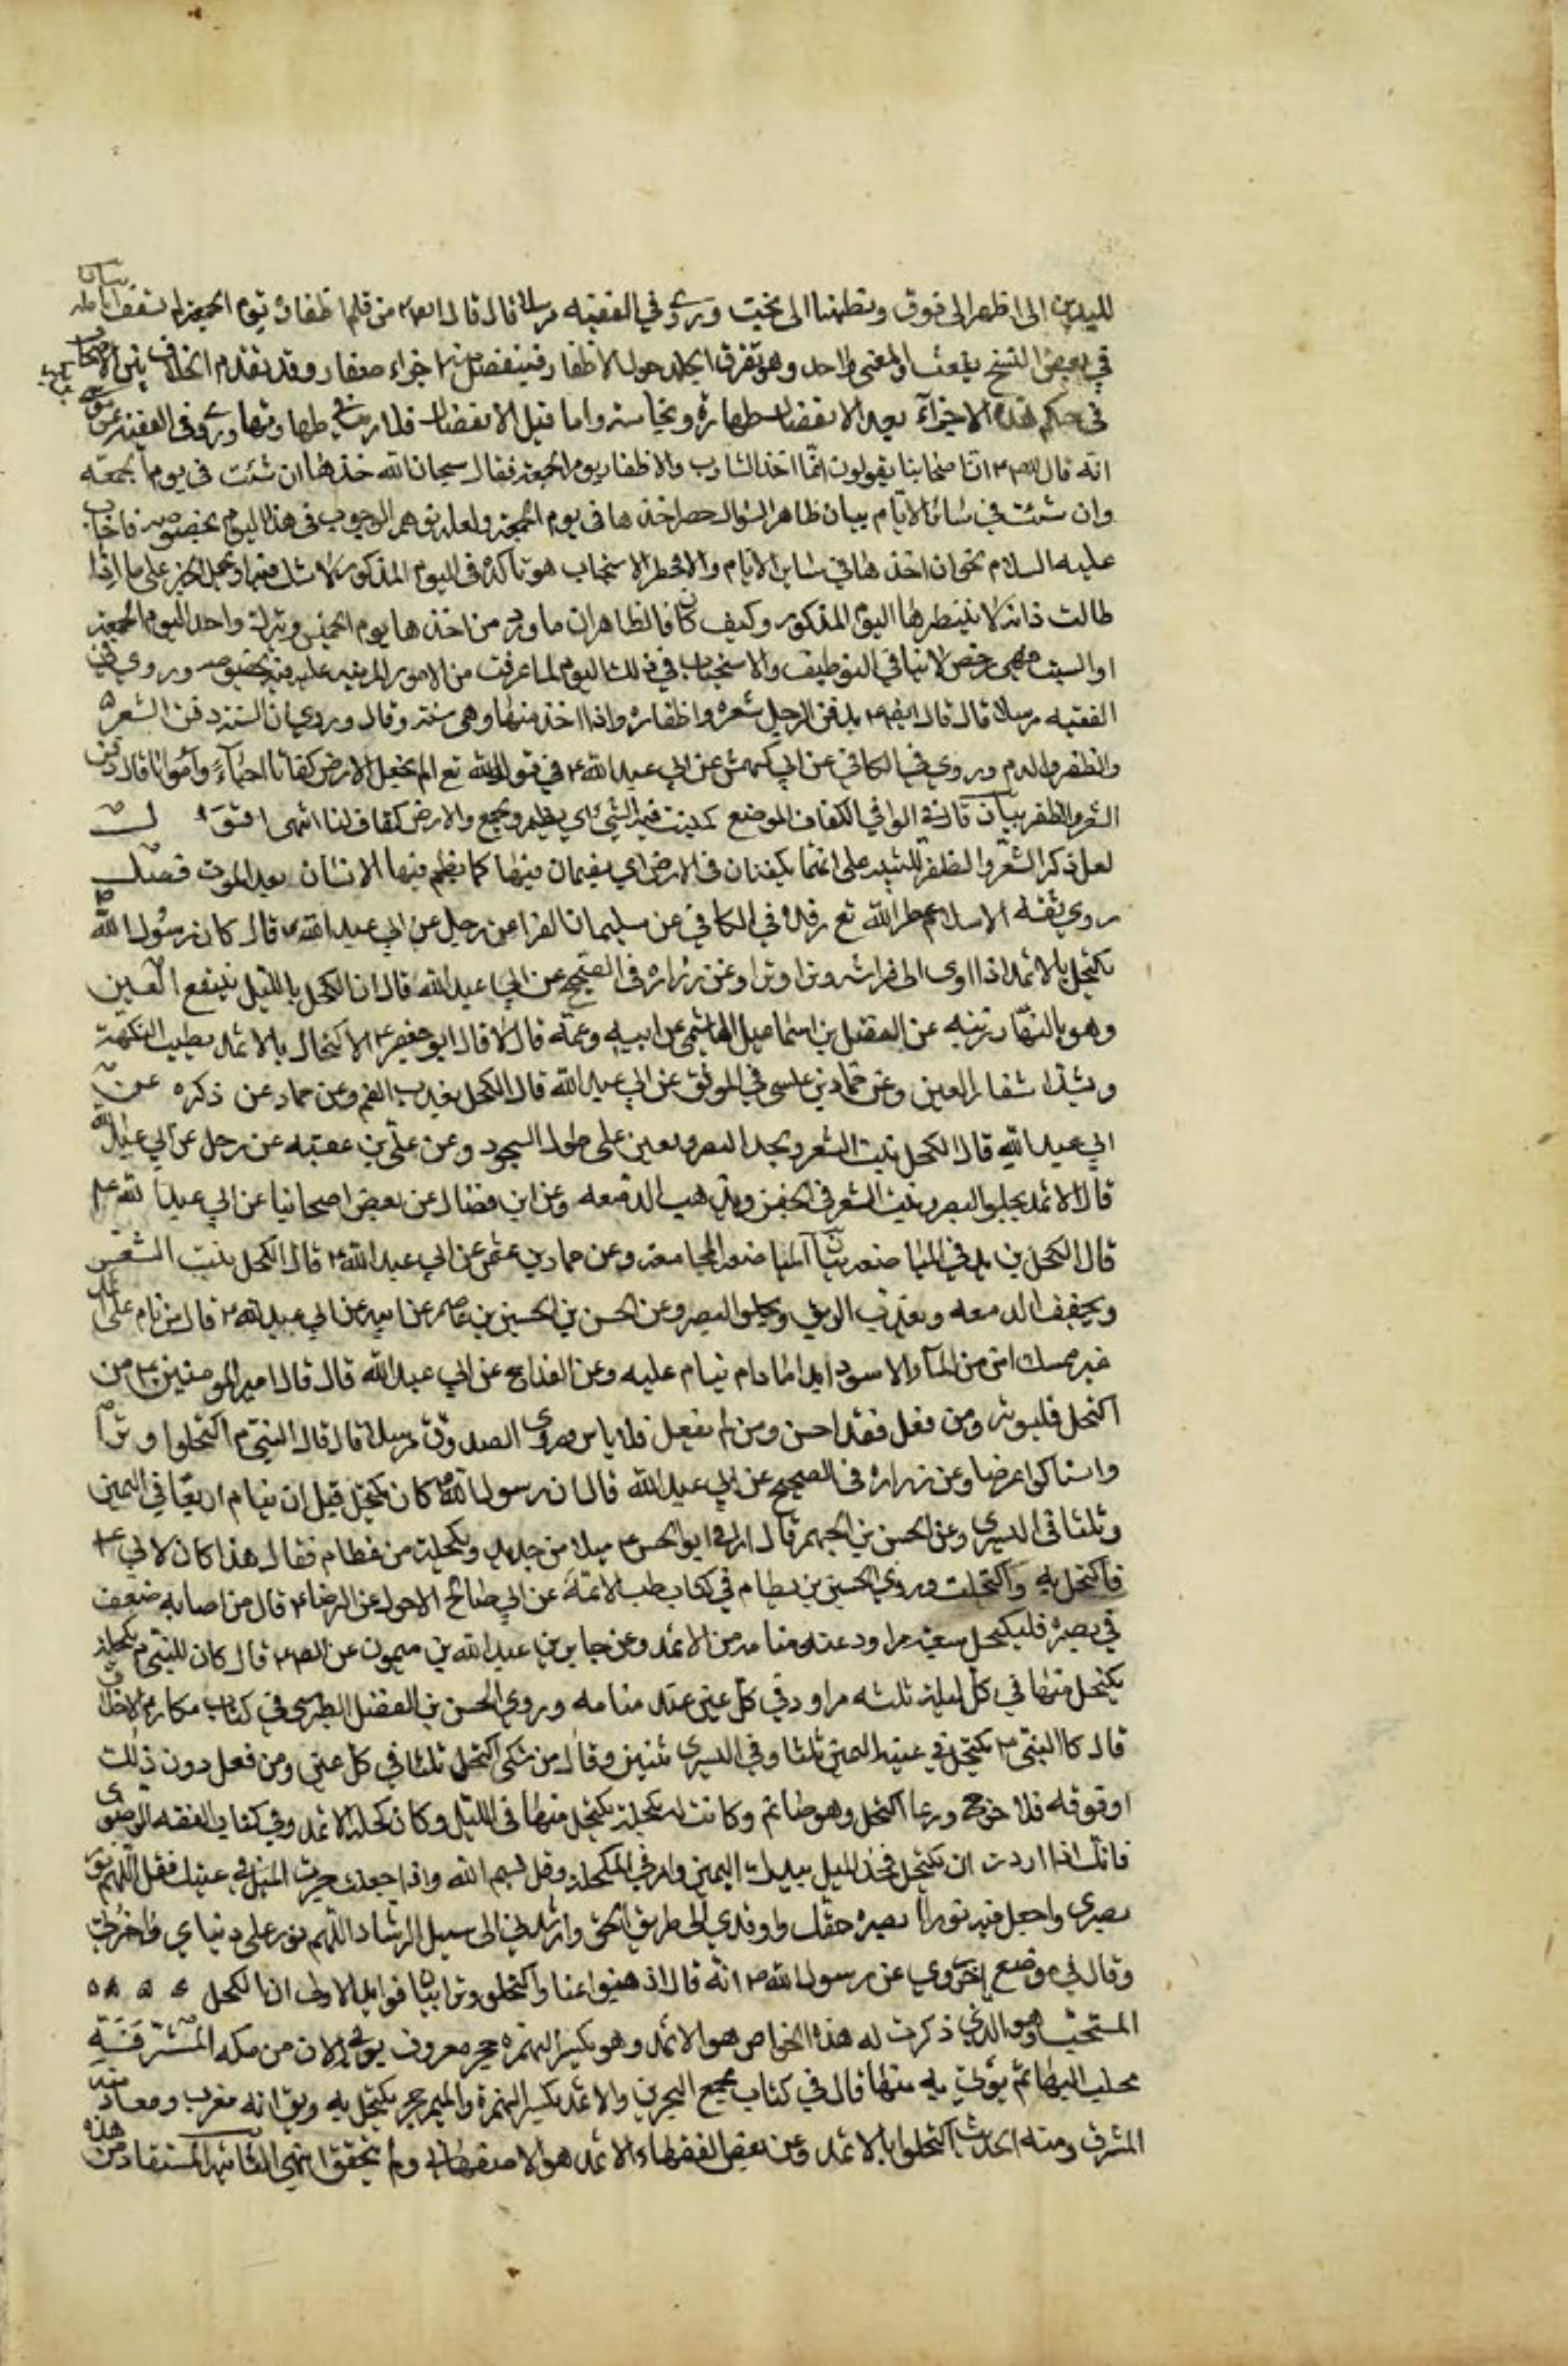 لليدين الى اظهر الى فوق وبطنها الى تحت وروى في الفقيه مرسلا قال قال من قلم اظفاره يوم الجمعة لم تشعث انامله
في بعض النسخ يشعث والمعنى واحد وهو تفرق الجلد حول الاظفار فينفصل منها اجزاء صغار وقد تقدم الخلاف بين الاصحاب
في حكم هذه الاجزآء بعد الانفصال طهارة ونجاسة واما قبل الانفصال فلا طهارتها وروى في الفقيه
انه قال ان اصحابنا يقولون انما اخذ الشارب والاظفار يوم الجمعة فقال سبحان الله خذها ان شئت في يوم الجمعة
وان شئت في سائر الايام بيان ظاهر السؤال حصر اخذها في يوم الجمعة ولعله توهم الوجوب في هذا اليوم بخصوصه فاجاب
عليه السلام اخذها في سائر الايام الاستحباب هو تأكده في اليوم المذكور على ما اذا
طالت فانه لا ينتظر بها اليوم المذكور وكيف كان فالظاهر ان ما ورد من اخذها يوم الخميس وترك واحد ليوم الجمعة
او السبت لا ينافي التوظيف والاستحباب في ذلك اليوم لما عرفت من الامور المرتبة عليه بخصوصه وروى في
الفقيه مرسلا قال قال يدفن الرجل شعره واظفاره واذا اخذ منها وهي سنة وقال وروى ان السنة دفن الشعر
والظفر والدم وروى في الكافي عن ابي كهمش عن ابي عبد الله ع في قول الله تع الم نجعل الارض كفاتا احياء وامواتا قال دفن
الشعر والظفر بيان قال في الوافي الكفات الموضع يكفت فيه الشيء اي يضم ويجمع والارض كفات لنا انتهى اقول
لعل ذكر الشعر والظفر للتنبيه على انهما يكفتان في الارض اي يضمان فيها كما يضم فيها الانسان بعد الموت فصل
روى ثقة الاسلام عطر الله تع رقده في الكافي عن سليمان الفرا عن رجل عن ابي عبد الله قال كان رسول الله
يكتحل بالاثمد اذا اوى الى فراشه وترا وترا وعن زراره في الصحيح عن ابي عبد الله قال ان الكحل بالليل ينفع العين
وهو بالنهار زينه عن الفضل بن اسماعيل الهاشمي عن ابيه وعمه قالا قال ابو جعفر ع الاكتحال بالاثمد يطيب النكهة
ويشد اشفار العين وعن حماد بن عيسى في الموثق عن ابي عبد الله قال الكحل يعذب الفم وعن حماد عن ذكره عن
ابي عبد الله قال الكحل ينبت الشعر ويحد البصر ويعين على طول السجود وعن علي بن عقبه عن رجل عن ابي عبد الله
قال الاثمد يجلو البصر وينبت الشعر في الجفن ويذهب الدمعه وعن ابن فضال عن بعض اصحابنا عن ابي عبد الله ع
قال الكحل يزيد في المباضعه بيان المباضعه المجامعة وعن حماد بن عثمن عن ابي عبد الله ع قال الكحل ينبت الشعر
ويجفف الدمعه ويعذب الريق ويجلو البصر وعن الحسن بن الحسين بن عاصم عن ابيه عن ابي عبد الله ع قال من نام على اثمد
غير ممسك امن من المآ الاسود ابدا ما دام ينام عليه وعن القداح عن ابي عبد الله قال قال امير المومنين ع من
اكتحل فليوتر ومن فعل فقد احسن ومن لم يفعل فلا باس وروى الصدوق مرسلا قال قال النبي اكتحلوا وترا
واستاكوا عرضا وعن زراره في الصحيح عن ابي عبد الله قال ان رسول الله كان يكتحل قبل ان ينام اربعا في اليمنى
وثلثا في اليسرى وعن الحسن بن الجهم قال اراني ابو الحسن ع ميلا من حديد ومكحلة من عظام فقال هذا كان لابي
فاكتحل به واكتحلت وروى الحسين بن بسطام في كتاب طب الائمة عن ابي صالح الاحول عن الرضا ع قال من اصابه ضعف
في بصره فليكتحل سبعة مراود عند منامه من الاثمد وعن جابر بن عبد الله بن ميمون قال كان للنبي مكحلة
يكتحل منها في كل ليلة ثلثه مراود في كل عين عند منامه وروى الحسن بن الفضل الطبرسي في كتاب مكارم الاخلاق
قال كان النبي يكتحل في عينه اليمنى ثلثا وفي اليسرى ثنتين وقال من شاء اكتحل ثلثا في كل عين ومن فعل دون ذلك
او فوقه فلا حرج وربما اكتحل وهو صائم وكانت له مكحلة يكتحل منها في الليل وكان كحله الاثمد وفي كتاب الفقه الرضوي
فانك اذا اردت ان تكتحل فخذ الميل بيدك اليمنى وادر في المكحلة وقل بسم الله واذا جعلت الميل في عينك فقل اللهم نور
بصري واجعل فيه نورا ابصر به حقك واهدني الى طريق الحق وارشدني الى سبيل الرشاد اللهم نور على دنياي واخرتي
وقال في موضع اخر وروي عن رسول الله انه قال ادهنوا غبا واكتحلوا وترا بيان فوايد الاولى ان الكحل
المستحب وهو الذي ذكرت له هذه الخواص هو الاثمد وهو بكسر الهمزه حجر معروف يوتى به الان من مكه المشرفة
يجلب اليها ثم يؤتى به منها قال في كتاب مجمع البحرين والاثمد بكسر الهمزة والميم حجر يكتحل به ويق انه معرب ومعادنه
المشرق ومنه الحديث اكتحلوا بالاثمد وعن بعض الفقهاء الاثمد هو الاصفهاني ولم يتحقق انتهى الثانيه المستفاد من هذه